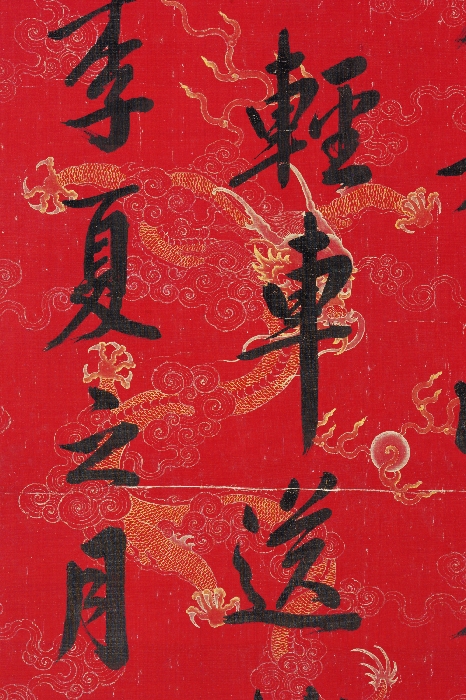 輕車送
李夏之月